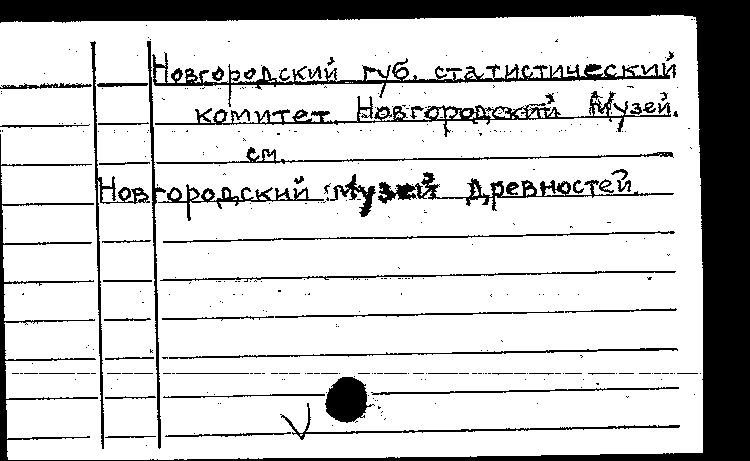 Новгородский губ. статистический
комитет. Новгородский Музей.
см.
Новгородский музей древностей.